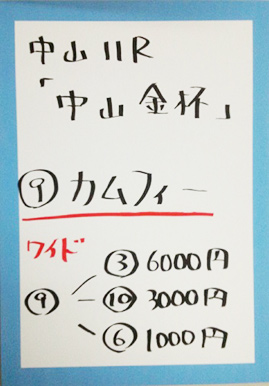 中山11R
「中山金杯」
⑨カムフィー
ワイド
③6000円
⑨-⑩3000円
⑥1000円